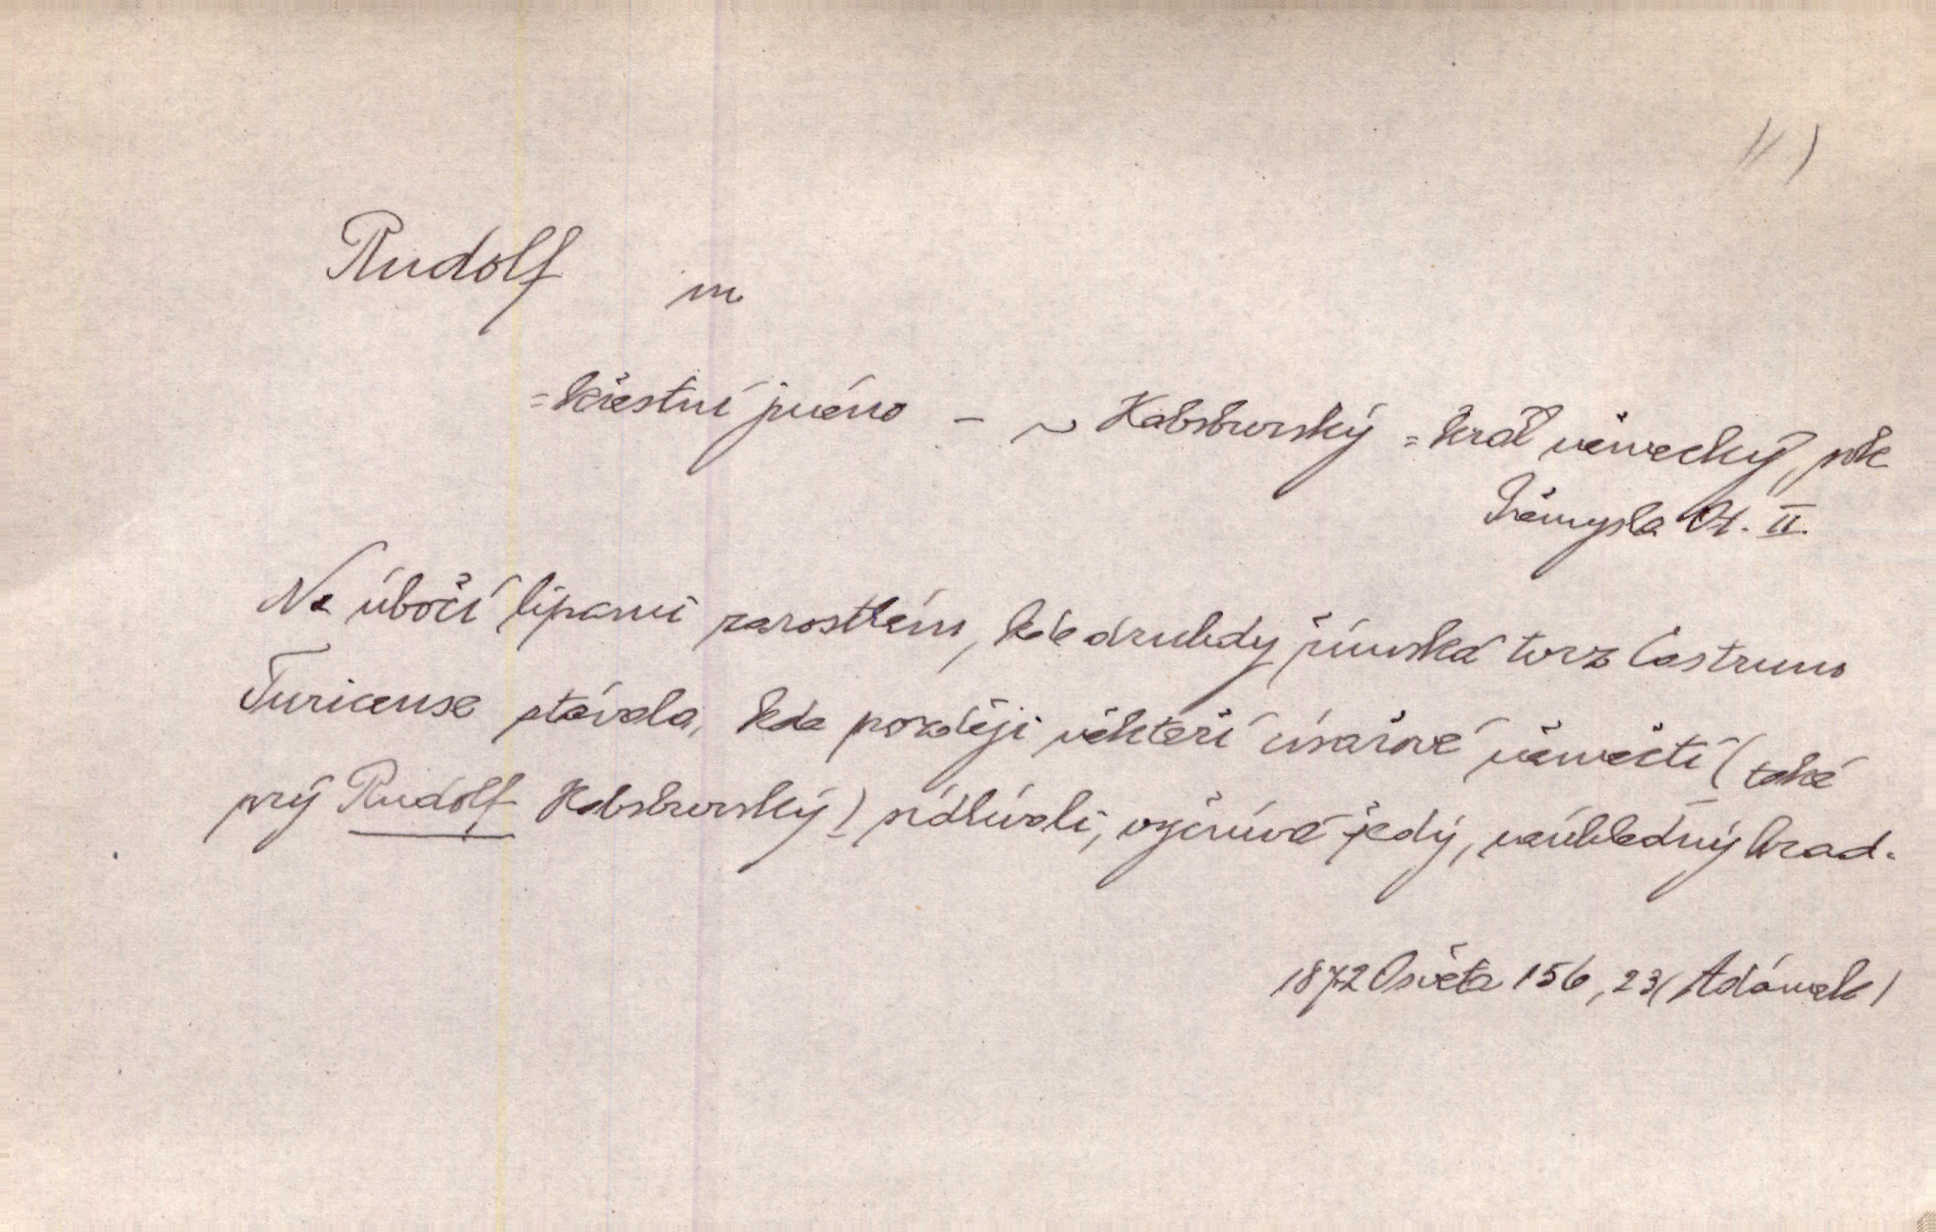 Rudolf m
= křestní jméno – ~ Habsburský = král německý, sok
Přemysla Ot. II.
Na úbočí lipami zarostlém, kde druhdy římská tvrz Castrum
Turicense stávala, kde později někteří císařové němečtí (také
prý Rudolf Habsburský) sídlívali, vyčnívá šedý, neúhledný hrad.
1872 Osvěta 156, 23 (Adámek)